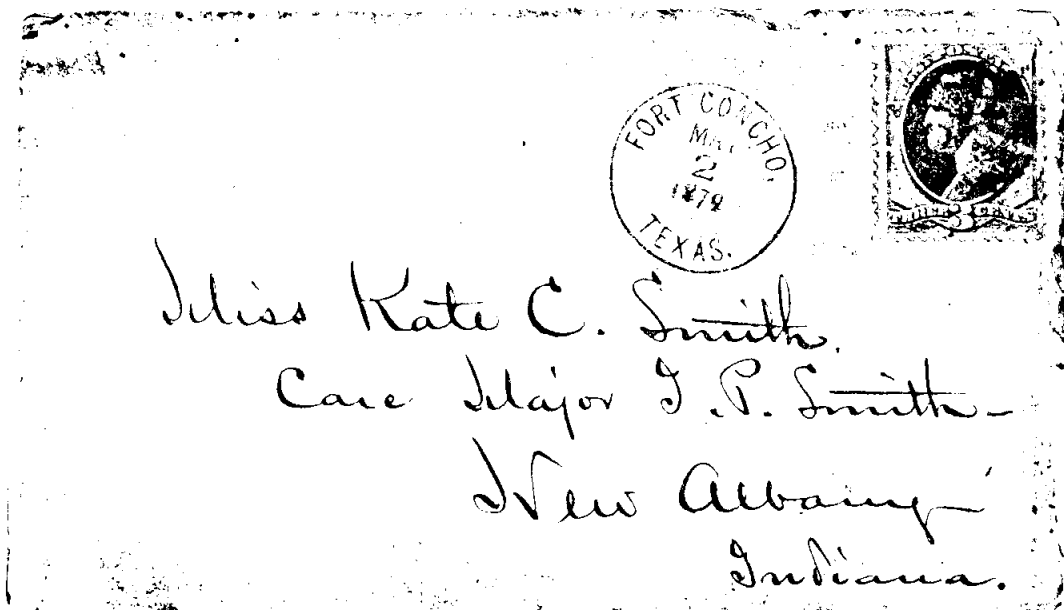 FORT CONCHO,
2
187
TEXAS.
THREE 3 CENTS
Miss Kate C. Smith.
Care Major J. P. Smith-
New Albany
Indiana.